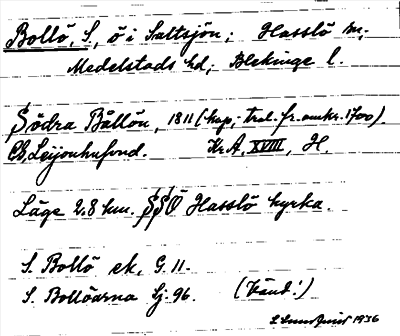 Bollö, S, ö i Saltsjön; Hasslö sn;
Medelstads hd; Blekinge l.
Södra Bållön, 1811 (kop, trol. fr. omkr. 1700).
Eb. Leijonhufvud. Kr.A. XVIII, H.
Läge 2,8 km. SSÖ Hasslö kyrka.
S. Bollö ek. G. 11.
S. Bollöarna Sj. 96. (Vänd!)
1936